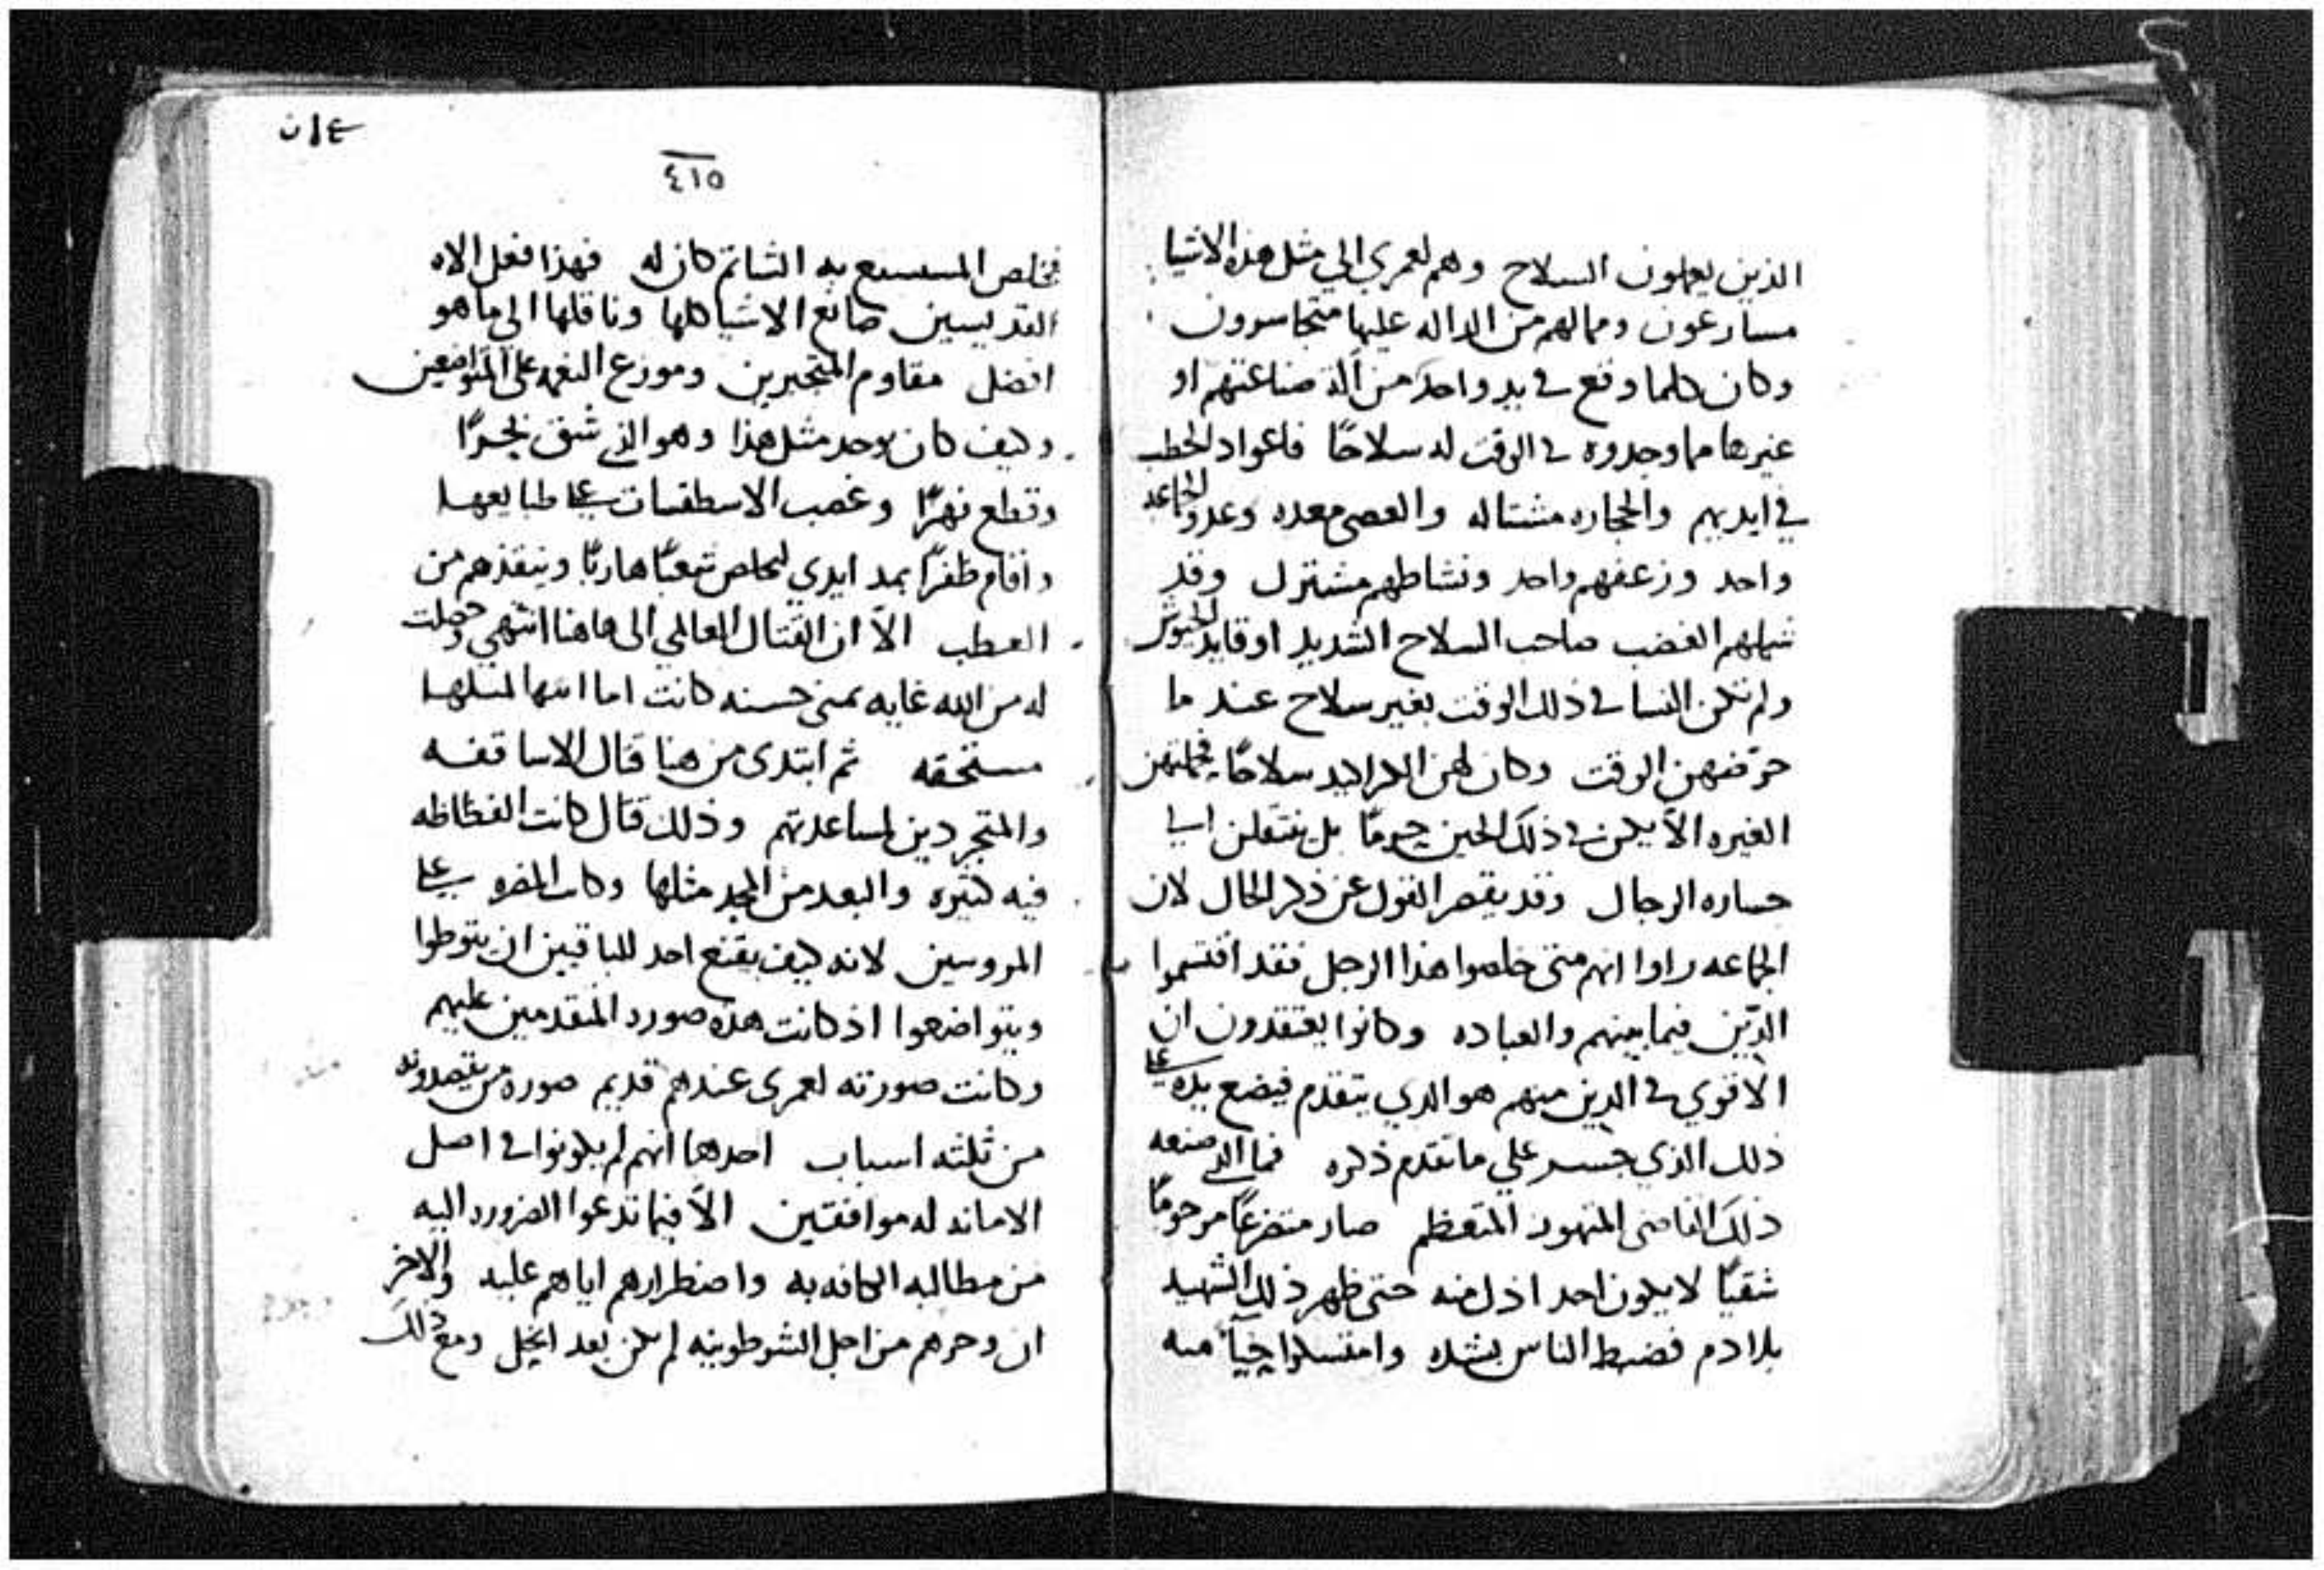 الذين يعملون السلاح وهم لعمري الي مثل هذه الاشيا
مسارعون ومما لهم من الداله عليها متجاسرون
وكان كلما وقع في يد واحد من آلة صناعتهم او
غيرها مما وجدوه في الوقت له سلاحًا فاعواد الحطب
في ايديهم والحجاره مشتاله والعصي معده وعدو الجماعه
واحد وزعقهم واحد ونشاطهم مشترك وقد
شملهم الغضب صاحب السلاح الشديد اوقايد الجيوش
ولم تكن النسا في ذلك الوقت بغير سلاح عند ما
حرّضهن الوقت وكان لهن سلاحًا
الغيره الاّ يكن في ذلك الحين حرمًا بل ينتقلن الي
جساره الرجال وقد يقصر القول عن ذكر الحال لان
الجماعه راوا انهم متي خلصوا هذا الرجل فقد اقتسموا
الدّين فيما بينهم والعباده وكانوا يعتقدون ان
الاقوي في الدين منهم هو الدي يتقدم فيضع يده علي
ذلك الذي جسر علي ما تقدم ذكره فما الذي صنعه
ذلك القاضي المتهور المتعظم صار متضرعًا مرحومًا
شقيًا لا يكون احد اذل منه حتي ظهر ذلك الشهيد
بلا دم فضبط الناس بشده منه
٤١٥
٤١٥
فخلص به الشاتم كان له فهذا فعل الاه
القديسين صانع الاشيا كلها وناقلها الي ما هو
افضل مقاوم المتجبرين وموزع النعمه علي المتواضعين
وكيف كان يوحد مثل هذا وهو الذي شق بحرًا
وقطع نهرًا وغصب الاسطقسات علي طبايعها
واقام ظفرًا بمد ايدي ليخلص شعبًا هاربًا وينقذهم من
العطب الاّ ان القتال العالمي الي هاهنا انتهي وحصلت
له من الله غايه حسنه كانت اما انها لمثلها
مستحقه ثم ابتدي من هنا قتال الاساقفه
والمتجردين لمساعدتهم وذلك قتال كانت الفظاظه
فيه كثيره والبعد من المجد مثلها وكانت المضره علي
المروسين لانه كيف يقنع احد للباقيين ان يتوطوا
ويتواضعوا اذ كانت هذه صورة المتقدمين عليهم
وكانت صورته لعمري عندهم قديم صورة من يقصدونه
من ثلثه اسباب احدها انهم لم يكونوا في اصل
الامانه له موافقين الاّ فيما تدعوا الضروره اليه
من مطالبه الكافه به واضطرارهم اياهم عليه والاخر
ان وحرهم من اجل الشرطونيه لم يكن بعد انحل ومع ذلك